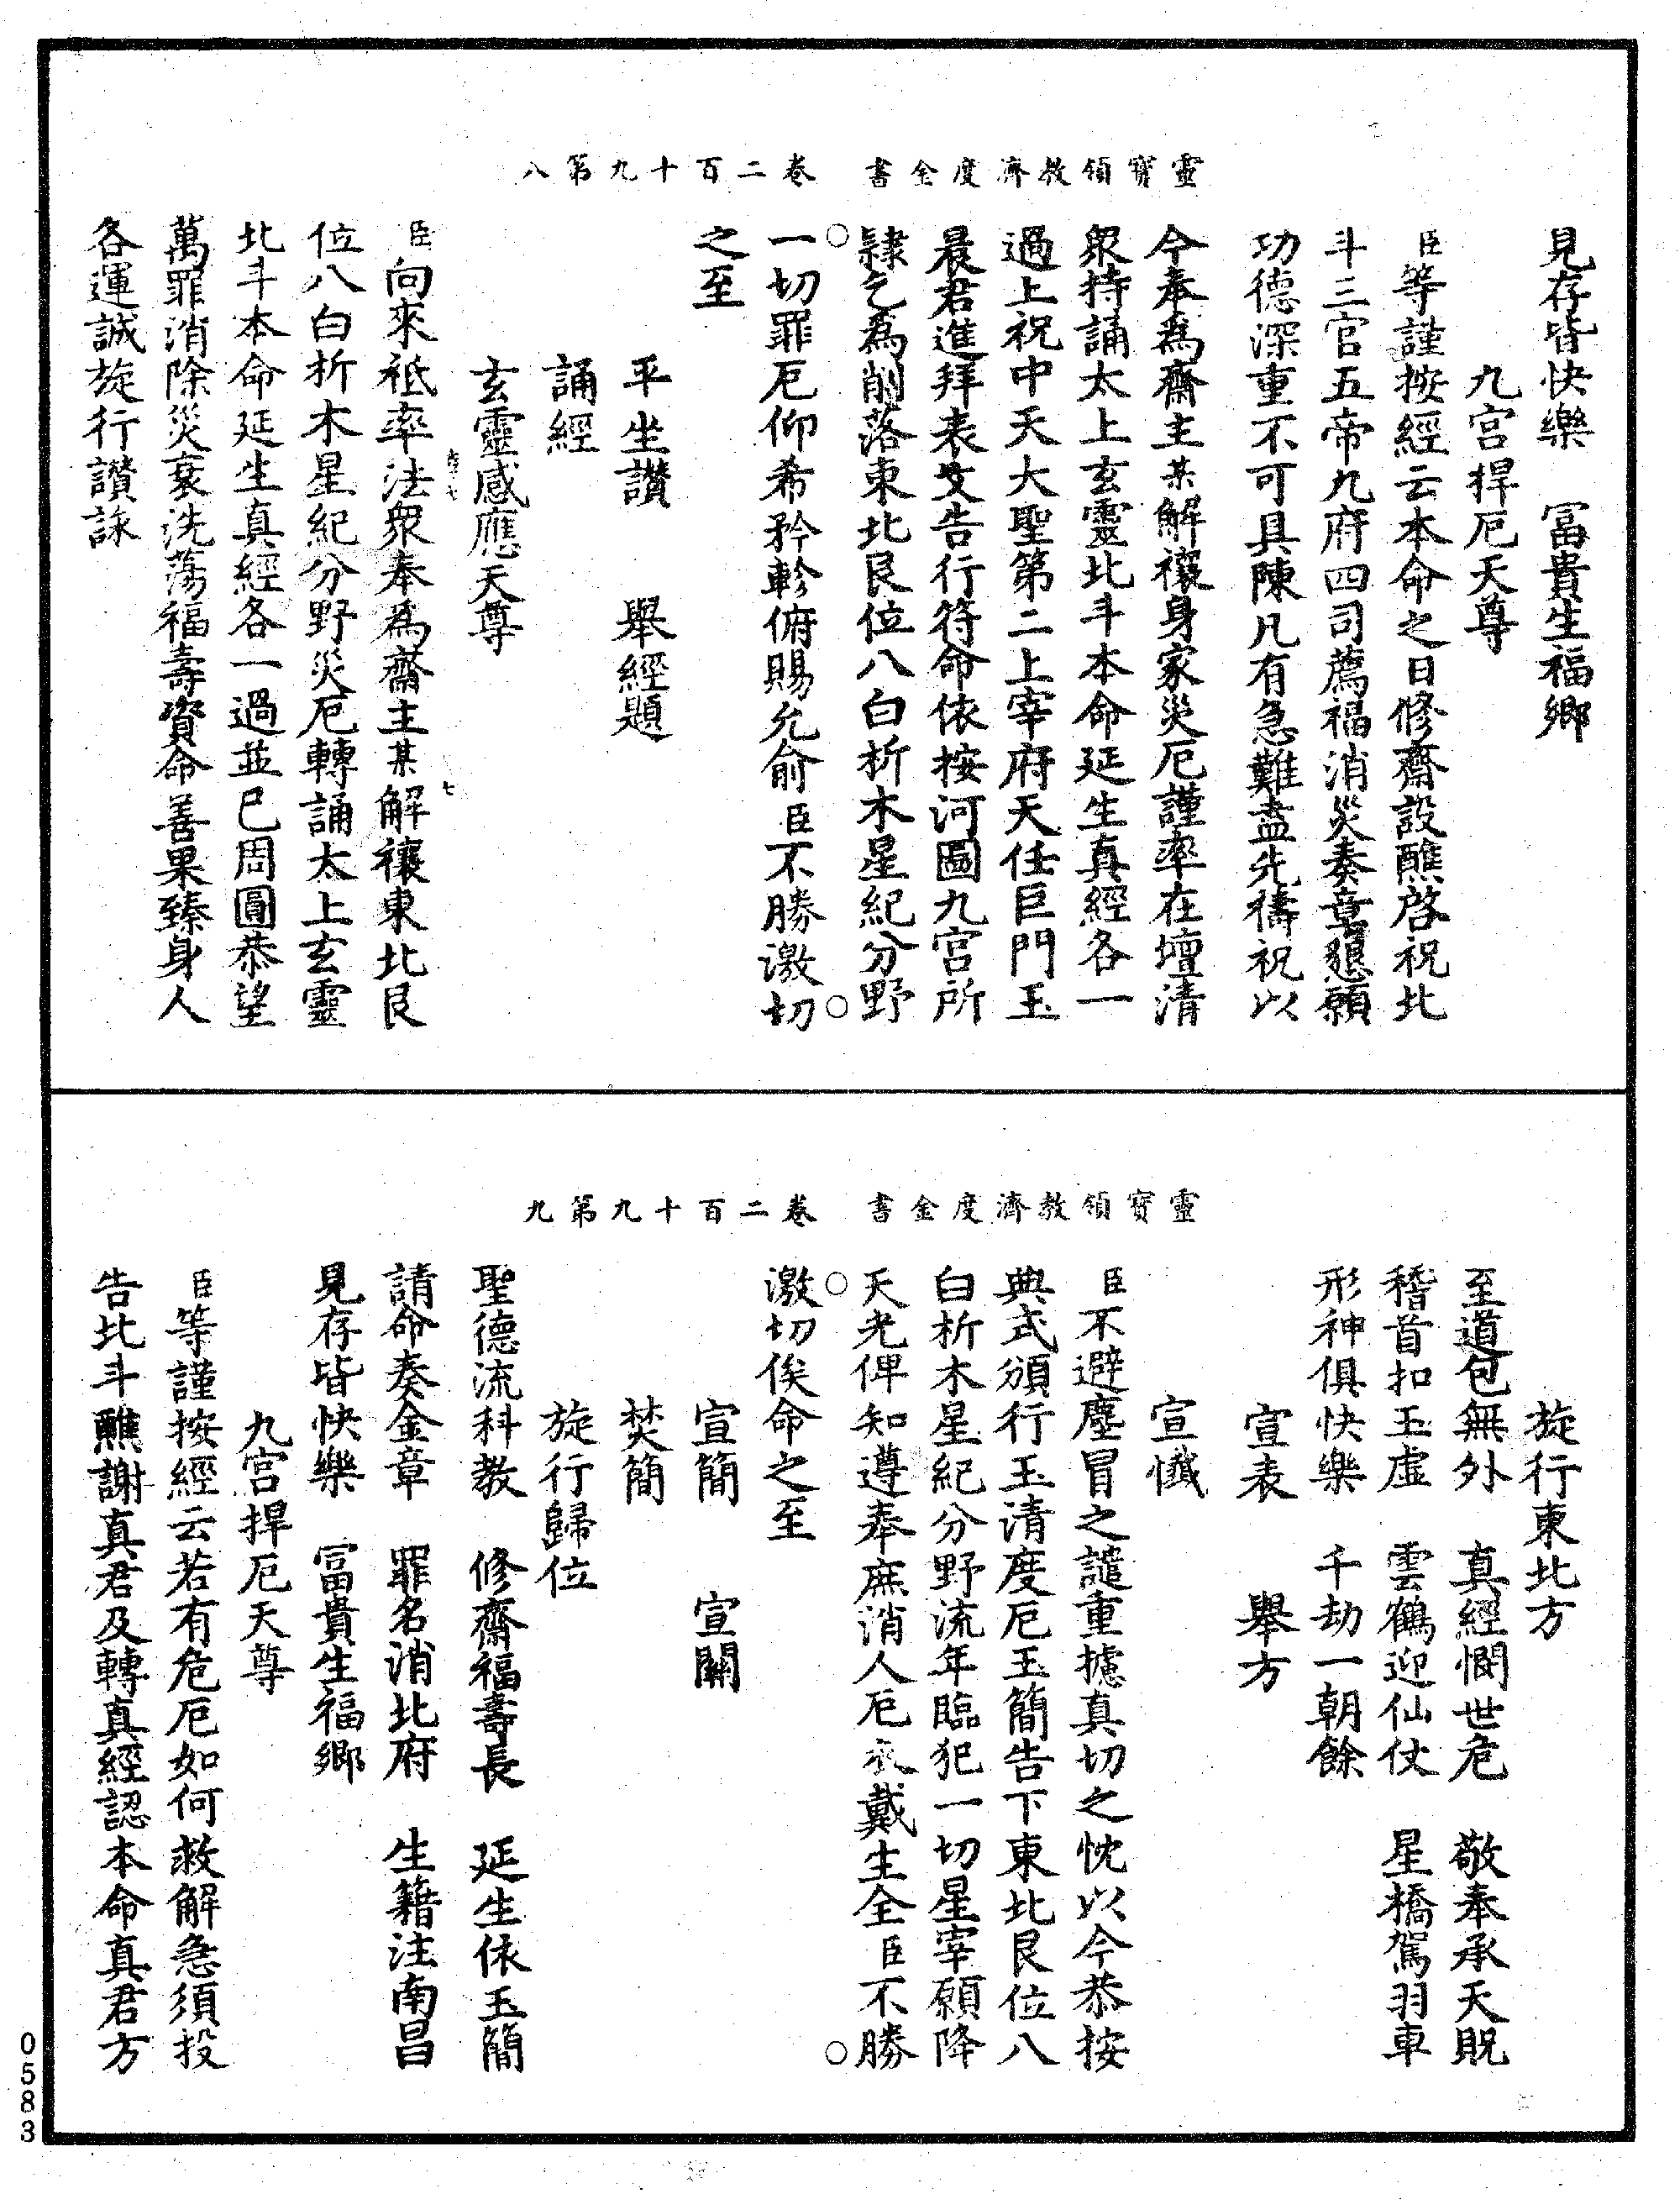 靈寶領教濟度金書　卷二百十九第八
見存皆快樂　冨貴生福鄉
九宮捍厄天尊
臣等謹按經云本命之日修齋設醮啓祝北
斗三官五帝九府四司薦福消災奏章懇願
功德深重不可具陳凡有急難盡先禱祝以
今奉爲齋主某解禳身家災厄謹率在壇清
衆持誦太上玄靈北斗本命延生真經各一
過上祝中天大聖第二上宰府天任巨門玉
晨君進拜表文告行符命依按河圖九宮所
隸乞爲削落東北艮位八白析木星紀分野
一切罪厄仰希矜軫俯賜允俞臣不勝激切
之至
平坐讚　舉經題
誦經
玄靈感應天尊
臣向來祗率法衆奉爲齋主某解禳東北艮
位八白析木星紀分野災厄轉誦太上玄靈
北斗本命延生真經各一過並已周圓恭望
萬罪消除災衰洗蕩福壽資命善果臻身人
各運誠旋行讚詠
靈寶領教濟度金書　卷二百十九第九
旋行東北方
至道包無外　真經憫世危　敬奉承天貺
稽首扣玉虛　雲鶴迎仙仗　星橋駕羽車
形神俱快樂　千劫一朝餘
宣表　舉方
宣懺
臣不避塵冒之譴重攄真切之忱以今恭按
典式頒行玉清度厄玉簡告下東北艮位八
白析木星紀分野流年臨犯一切星宰願降
天光俾知遵奉庶消人厄永戴生全臣不勝
激切俟命之至
宣簡　宣關
焚簡
旋行歸位
聖德流科教　修齋福壽長　延生依玉簡
請命奏金章　罪名消北府　生籍注南昌
見存皆快樂　冨貴生福鄉
九宮捍厄天尊
臣等謹按經云若有危厄如何救解急須投
告北斗醮謝真君及轉真經認本命真君方
0583